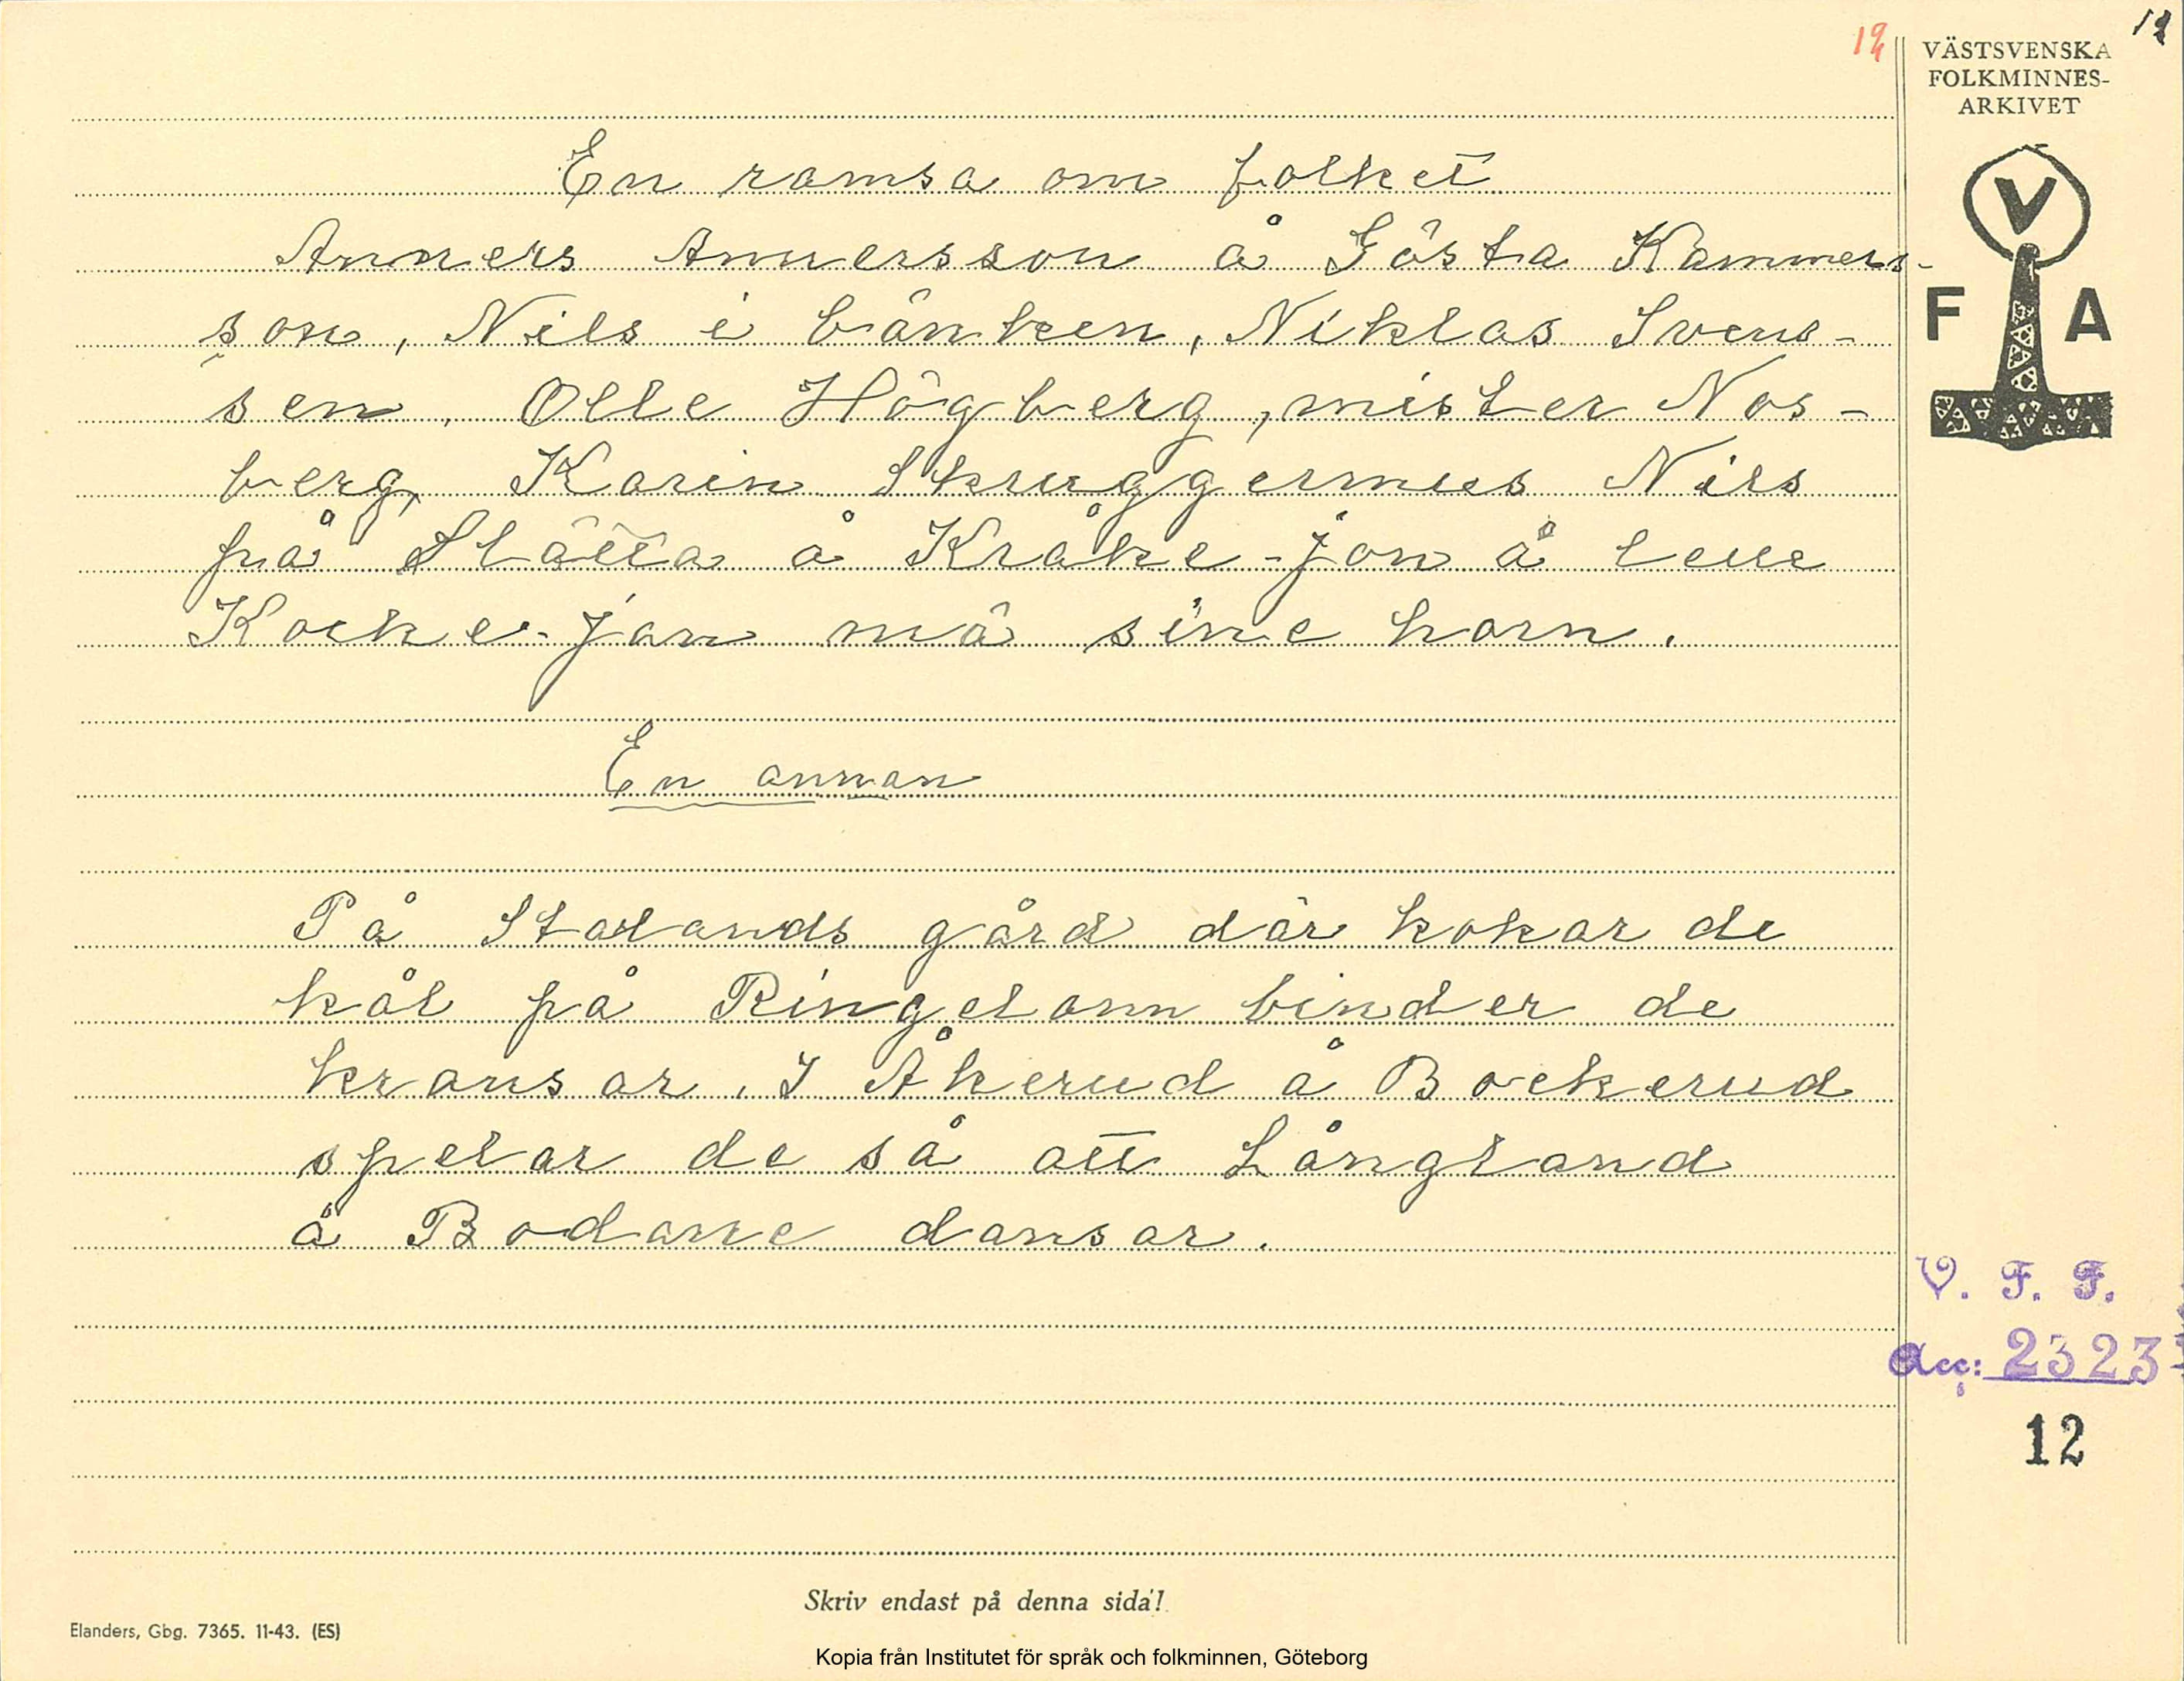 19
12
VÄSTSVENSKA
FOLKMINNES-
ARKIVET
V
F A
En ramsa om folket
Anners Annersson å Gösta Kammers-
son, Nils i bänken, Niklas Svens-
sen, Olle Högberg, mister Nos-
berg, Karin Skruggermus Nils
på Slätta å Kråke-jon å lelle
Kocke-jan mä sine horn.
En annan
På Stolands gård där kokar de
kål på Ringelann binder de
kransar. I Åkerud å Bockerud
spelar de så att Långland
å Bodane dansar.
V. F. F.
Acc: 2323
12
Skriv endast på denna sida!
Elanders, Gbg. 7365. 11-43. (ES)
Kopia från Institutet för språk och folkminnen, Göteborg